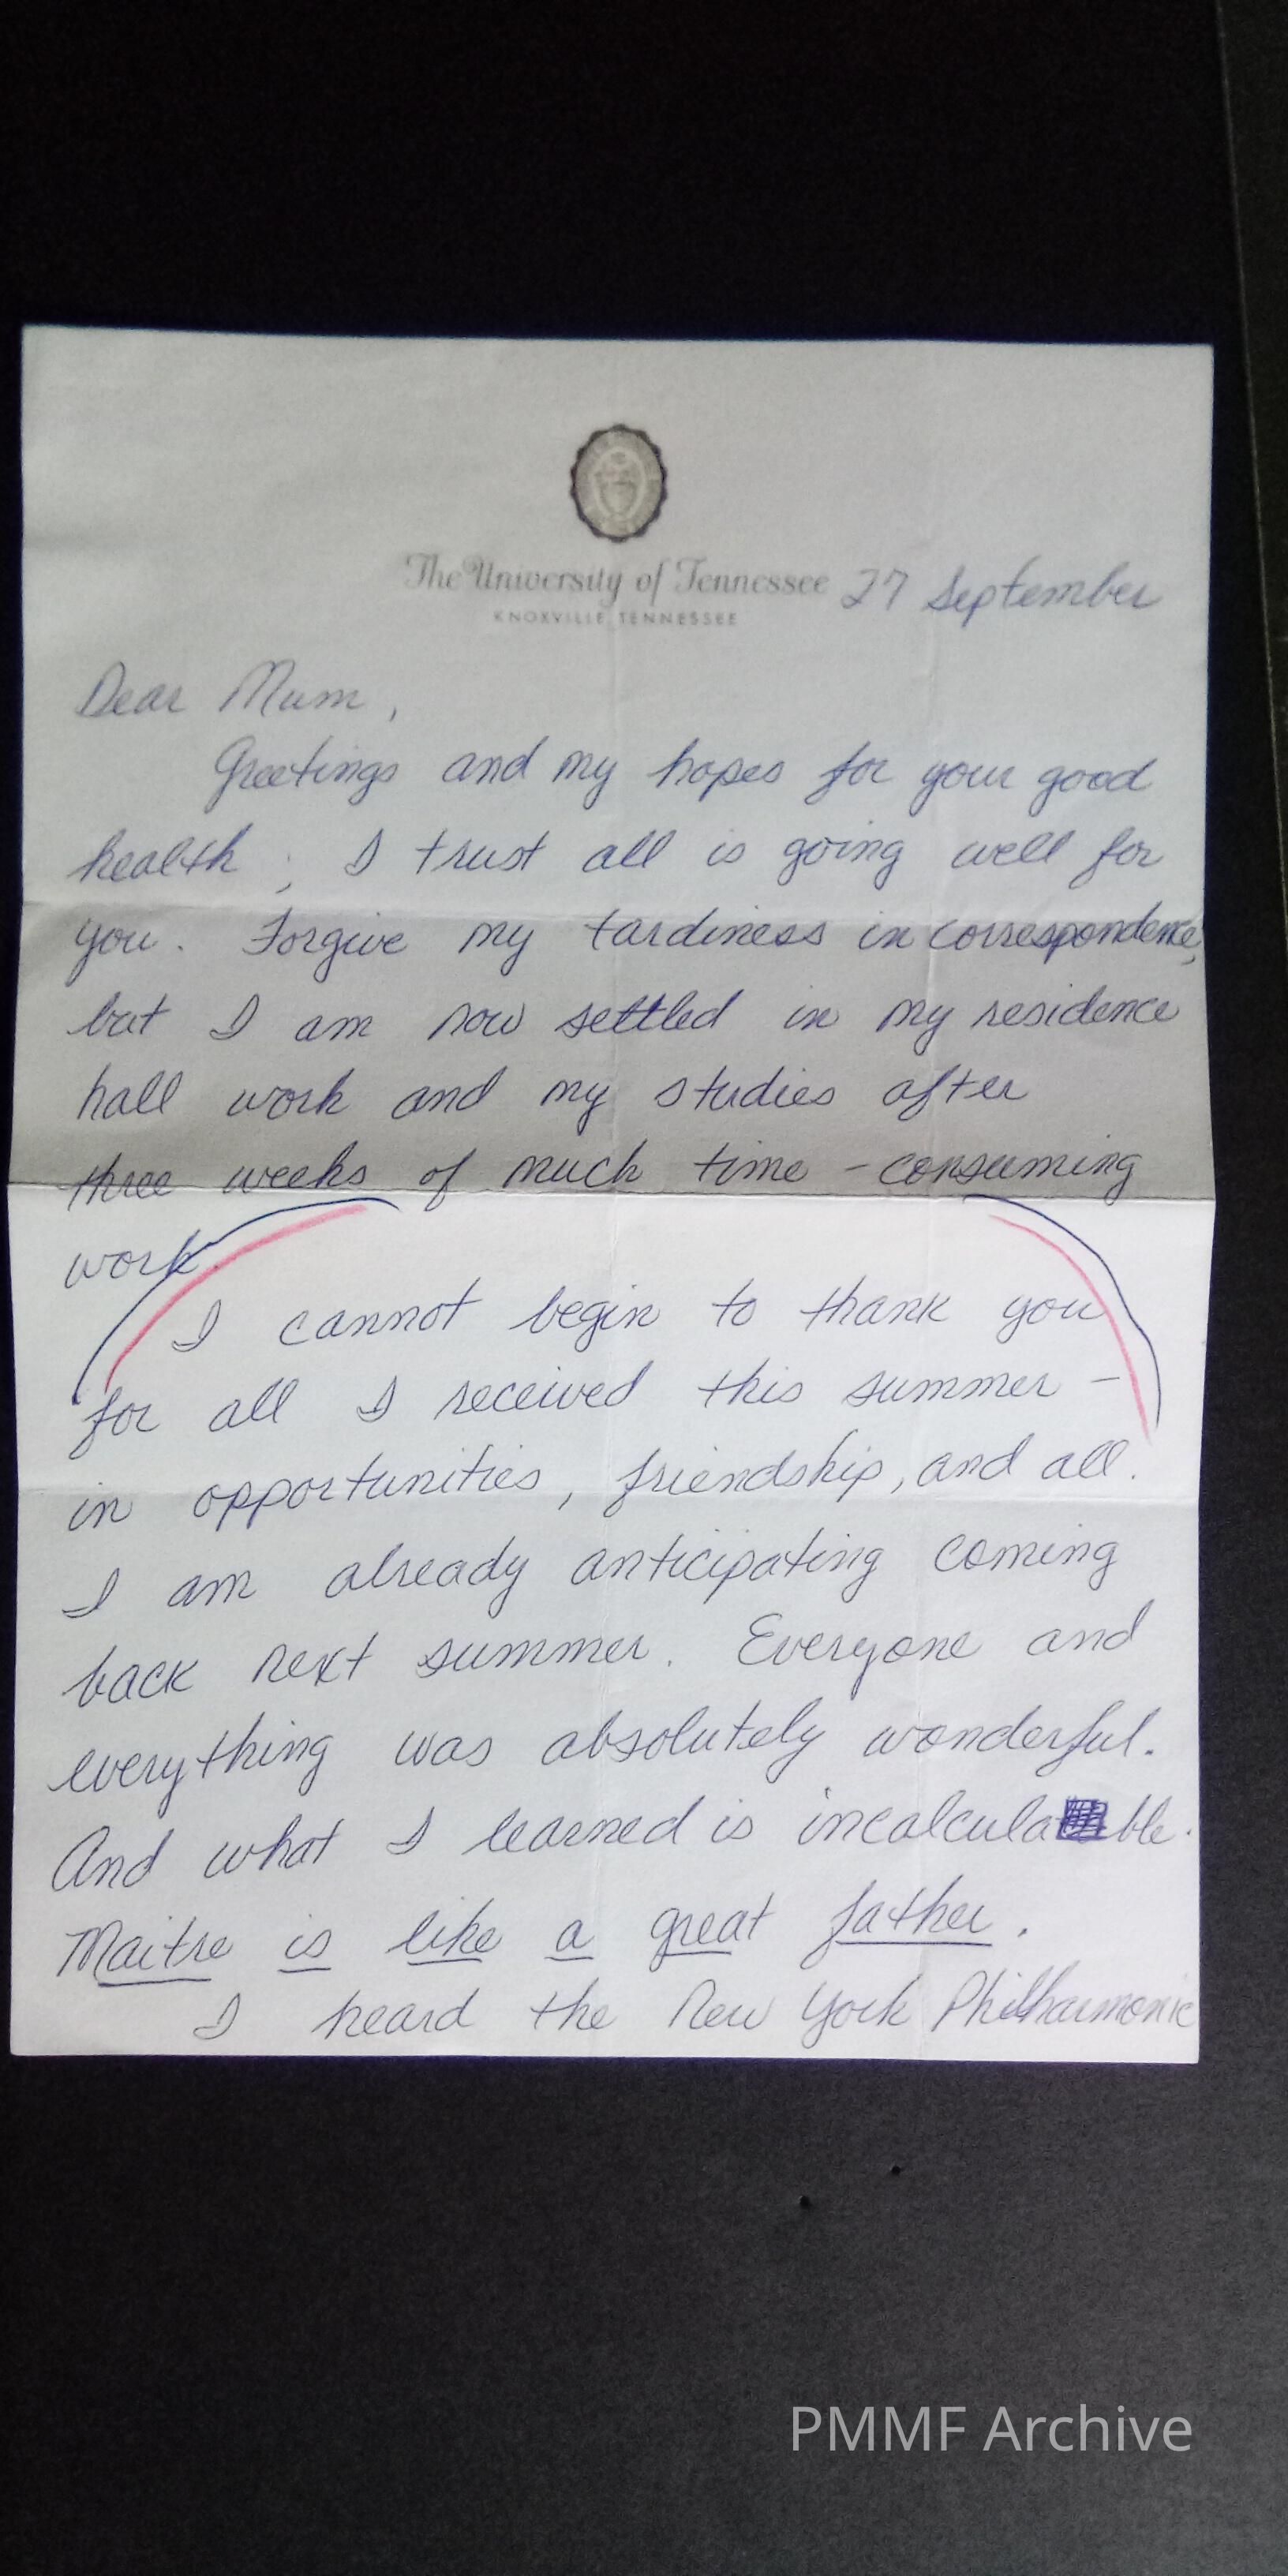 The University of Tennessee
KNOXVILLE, TENNESSEE
27 September
Dear Mum,
Greetings and my hopes for your good
health; I trust all is going well for
you. Forgive my tardiness in correspondence,
but I am now settled in my residence
hall work and my studies after
three weeks of much time-consuming
work.
I cannot begin to thank you
for all I received this summer –
in opportunities, friendship, and all.
I am already anticipating coming
back next summer. Everyone and
everything was absolutely wonderful.
And what I learned is incalculable.
Maitre is like a great father.
I heard the New York Philharmonic
PMMF Archive